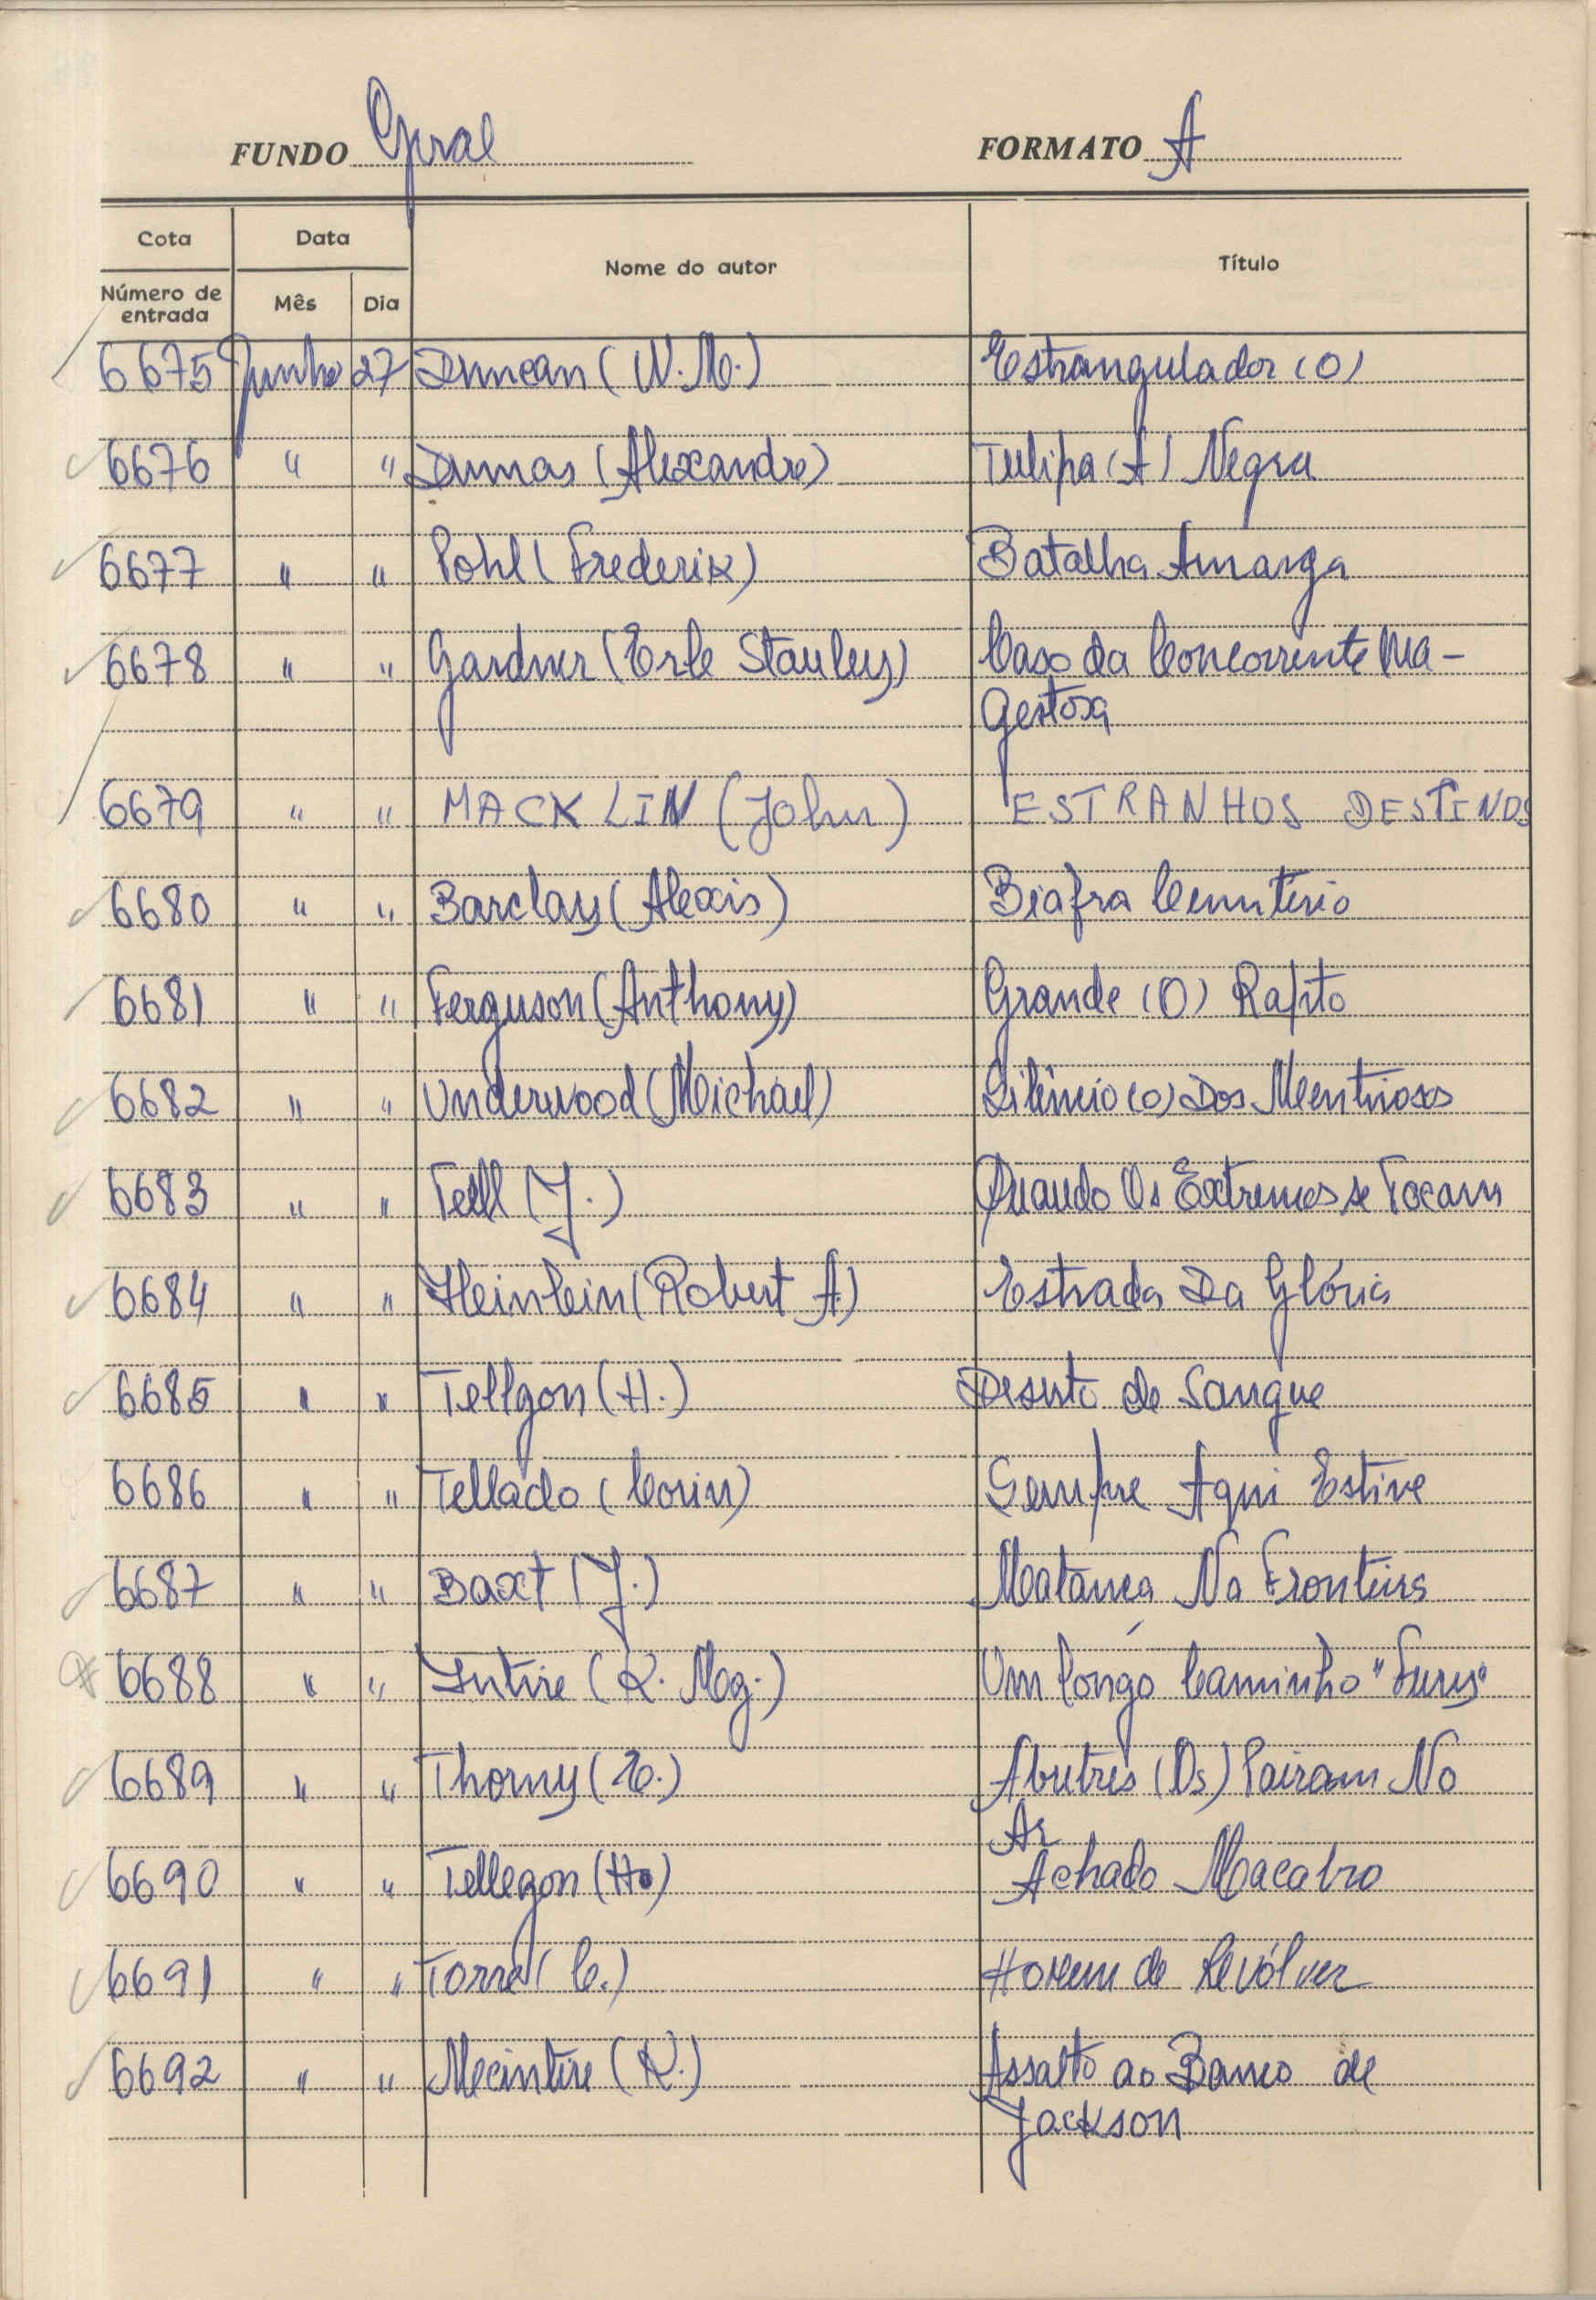 FUNDO Geral FORMATO A
Cota Data Nome do autor Título
Número de entrada Mês Dia
6675 Junho 27 Duncan (W. M.) Estrangulador (O)
6676 " " Dumas (Alexandre) Tulipa (A) Negra
6677 " " Pohl (Frederik) Batalha Amarga
6678 " " Gardner (Erle Stanley) Caso da Concorrente Ma-
gestosa
6679 " " MACKLIN (John) ESTRANHOS DESTINOS
6680 " " Barclay (Alexis) Biafra Cemitério
6681 " " Ferguson (Anthony) Grande (O) Rapto
6682 " " Underwood (Michael) Silêncio (O) Dos Mentirosos
6683 " " Tell (J.) Quando Os Extremos se Tocam
6684 " " Heinlein (Robert A.) Estrada Da Glória
6685 " " Tellgon (H.) Deserto de Sangue
6686 " " Tellado (Corin) Sempre Aqui Estive
6687 " " Baxt (J.) Matança Na Fronteira
6688 " " Intire (K. Mag.) Um Longo Caminho
6689 " " Thorny (E.) Abutres (Os) Pairam No
Ar
6690 " " Tellegon (H.) Achado Macabro
6691 " " Torre (C.) Homem de Revólver
6692 " " Mecintire (K.) Assalto ao Banco de
Jackson